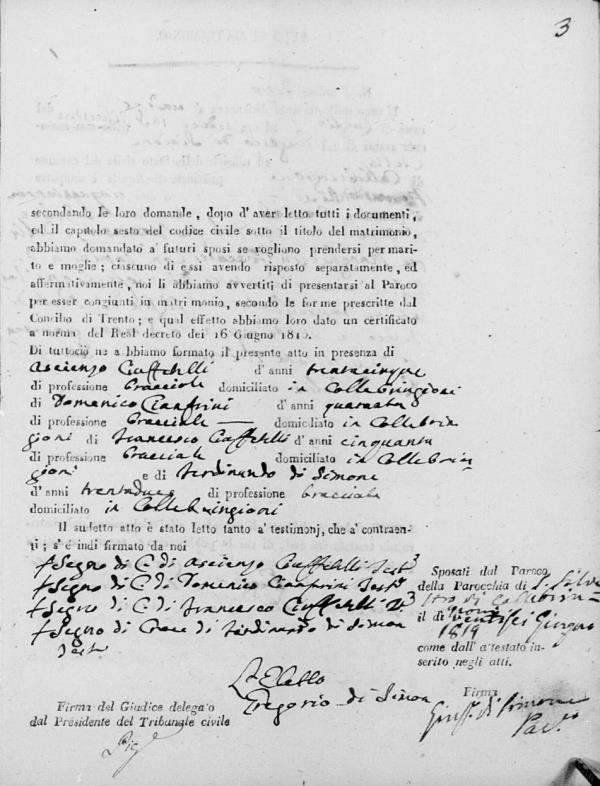 3
secondando le loro domande, dopo d'aver letto tutti i documenti,
ed il capitolo sesto del codice civile sotto il titolo del matrimonio,
abbiamo domandato a' futuri sposi se vogliono prendersi per mari-
to e moglie; ciascuno di essi avendo risposto separatamente, ed
affermativamente, noi li abbiamo avvertiti di presentarsi al Paroco
per esser congiunti in matrimonio, secondo le forme prescritte dal
Concilio di Trento; e qual effetto abbiamo loro dato un certificato
a norma del Real decreto dei 16 Giugno 1815.
Di tuttociò ne abbiamo formato il presente atto in presenza di
Ascienzo Ciaffelli d'anni trentacinque
di professione bracciale domiciliato in Collebringioni
di Domenico Cianfrini d'anni quaranta
di professione bracciale domiciliato in Collebrin
gioni di Francesco Ciaffelli d'anni cinquanta
di professione bracciale domiciliato in Collebrin-
gioni e di Ferdinando di Simone
d'anni trentadue di professione bracciale
domiciliato in Collebringioni
Il sudetto atto è stato letto tanto a' testimonj, che a' contraen-
ti; s'è indi firmato da noi
+ Segno di C. di Ascienzo Ciaffelli
+ Segno di C. di Domenico Cianfrini
+ Segno di C. di Francesco Ciaffelli
+ Segno di Croce di Ferdinando di Simon
Sposati dal Paroco
della Parocchia di S. Silve
stro di Collebrin-
gioni
il dì ventisei Giugno
1819
come dall'attestato in-
serito negli atti.
L'Eletto
Gregorio di Simon
Firma del Giudice delegato
dal Presidente del Tribunale civile
Firma
Gius. di Simone